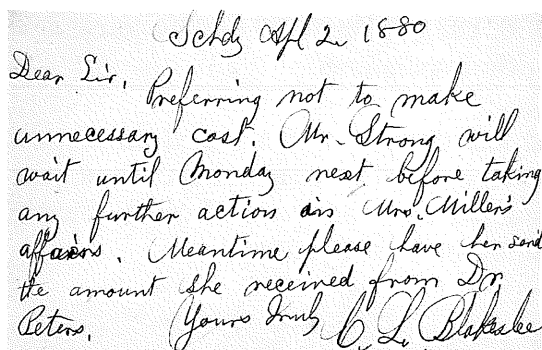 Schdy Apl 2. 1880
Dear Sir,
Preferring not to make
unnecessary cost. Mr. Strong will
wait until Monday next before taking
any further action in Mrs. Miller's
affairs. Meantime please have her send
the amount she received from Dr
Peters. Yours Truly C. L. Blakeslee